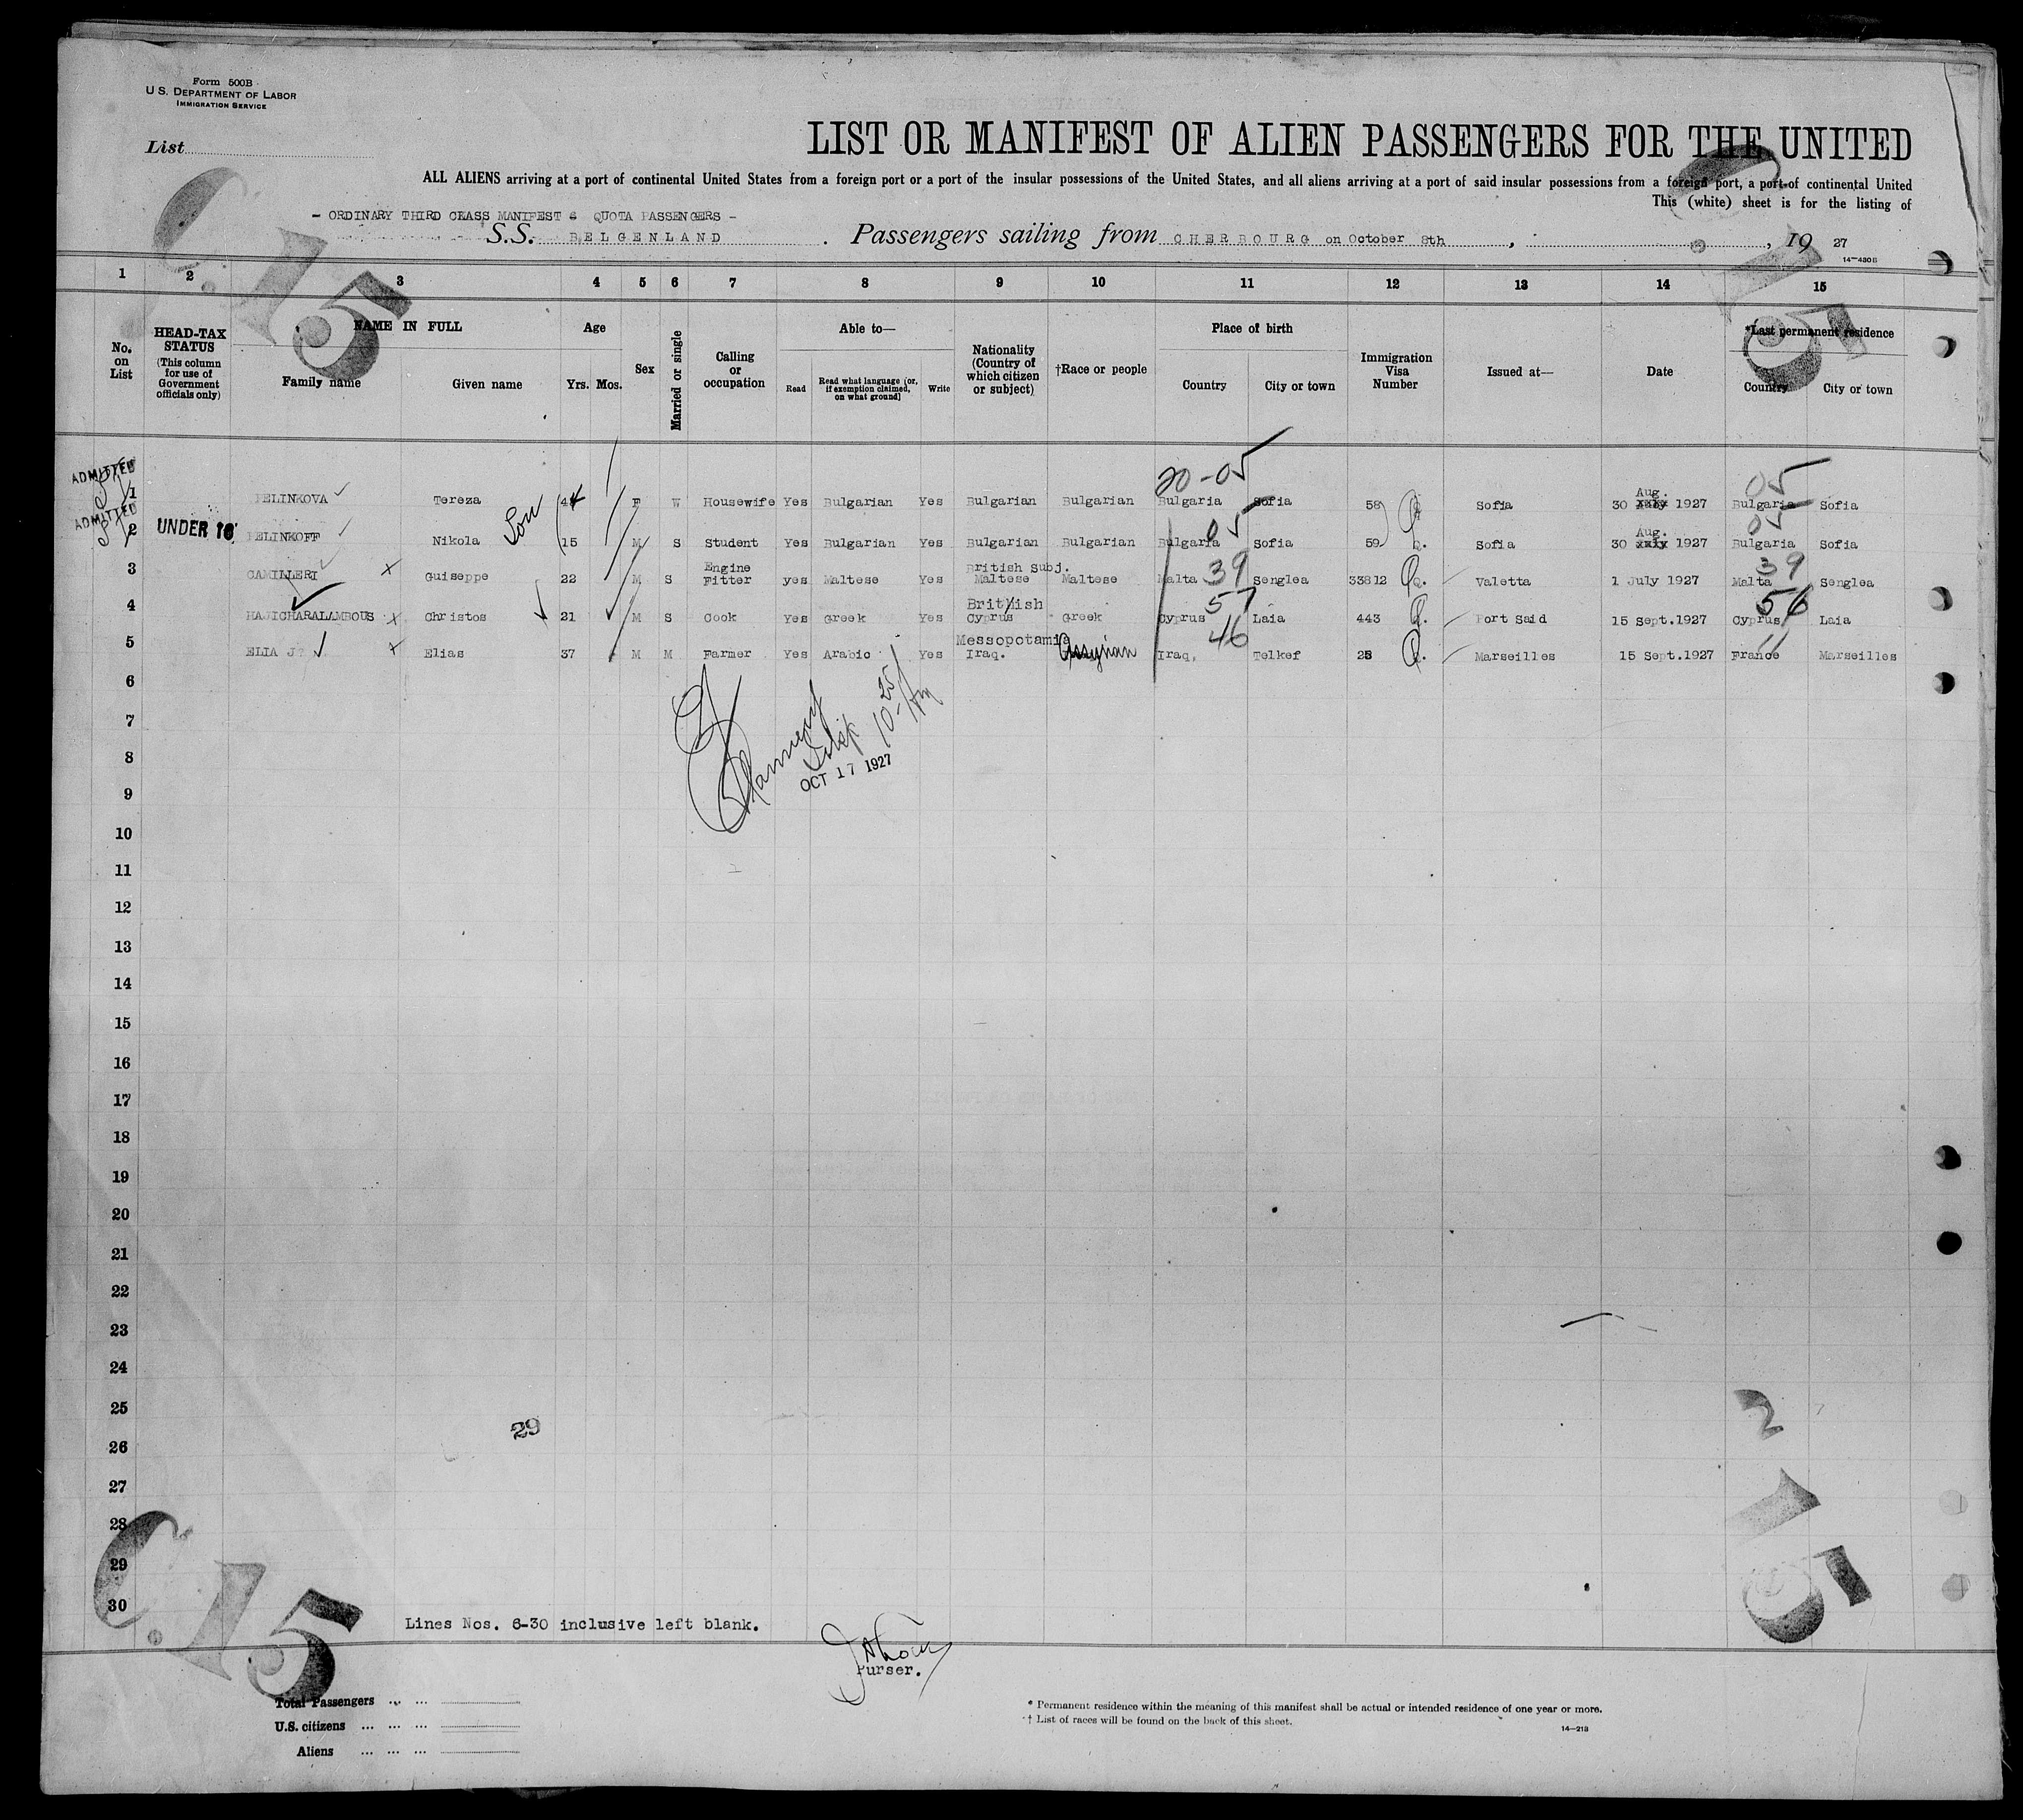 Form 500B
U.S. DEPARTMENT OF LABOR
IMMIGRATION SERVICE
List
LIST OR MANIFEST OF ALIEN PASSENGERS FOR THE UNITED
ALL ALIENS arriving at a port of continental United States from a foreign port or a port of the insular possessions of the United States, and all aliens arriving at a port of said insular possessions from a foreign port, a port of continental United
This (white) sheet is for the listing of
- ORDINARY THIRD CLASS MANIFEST & QUOTA PASSENGERS -
S.S. BELGENLAND. Passengers sailing from CHERBOURG on October 8th, , 19 27
14-430B
C 15
C 15
1 2 3 4 5 6 7 8 9 10 11 12 13 14 15
No. on List
HEAD-TAX STATUS (This column for use of Government officials only)
NAME IN FULL
Family name
Given name
Age
Yrs. Mos.
Sex
Married or single
Calling or occupation
Able to—
Read
Read what language (or, if exemption claimed, on what ground)
Write
Nationality (Country of which citizen or subject)
†Race or people
Place of birth
Country
City or town
Immigration Visa Number
Issued at—
Date
*Last permanent residence
Country
City or town
20-05 05
ADMITTED
1 PELINKOVA Tereza 44 F W Housewife Yes Bulgarian Yes Bulgarian Bulgarian Bulgaria Sofia 58 Q. Sofia 30 Aug. 1927 Bulgaria Sofia
ADMITTED
2 UNDER 16 PELINKOFF Nikola Son 15 M S Student Yes Bulgarian Yes Bulgarian Bulgarian Bulgaria 05 Sofia 59 Q. Sofia 30 Aug. 1927 Bulgaria 05 Sofia
3 CAMILLERI x Guiseppe 22 M S Engine Fitter yes Maltese Yes British Subj. Maltese Maltese Malta 39 Senglea 33812 Q. Valetta 1 July 1927 Malta 39 Senglea
4 HAJICHARALAMBOUS x Christos 21 M S Cook Yes Greek Yes British Cyprus Greek Cyprus 57 Laia 443 Q. Port Said 15 Sept.1927 Cyprus 56 Laia
5 ELIA J? x Elias 37 M M Farmer Yes Arabic Yes Messopotamia Iraq. Assyrian Iraq, 46 Telkef 25 Q. Marseilles 15 Sept.1927 France 11 Marseilles
6
7
8
OCT 17 1927
9
10
11
12
13
14
15
16
17
18
19
20
21
22
23
24
25
29
26
27
28
29
30
Lines Nos. 6-30 inclusive left blank.
Purser.
C 15
15
Total Passengers ... ...
U.S. citizens ... ... ...
Aliens ... ... ...
* Permanent residence within the meaning of this manifest shall be actual or intended residence of one year or more.
† List of races will be found on the back of this sheet.
14-213